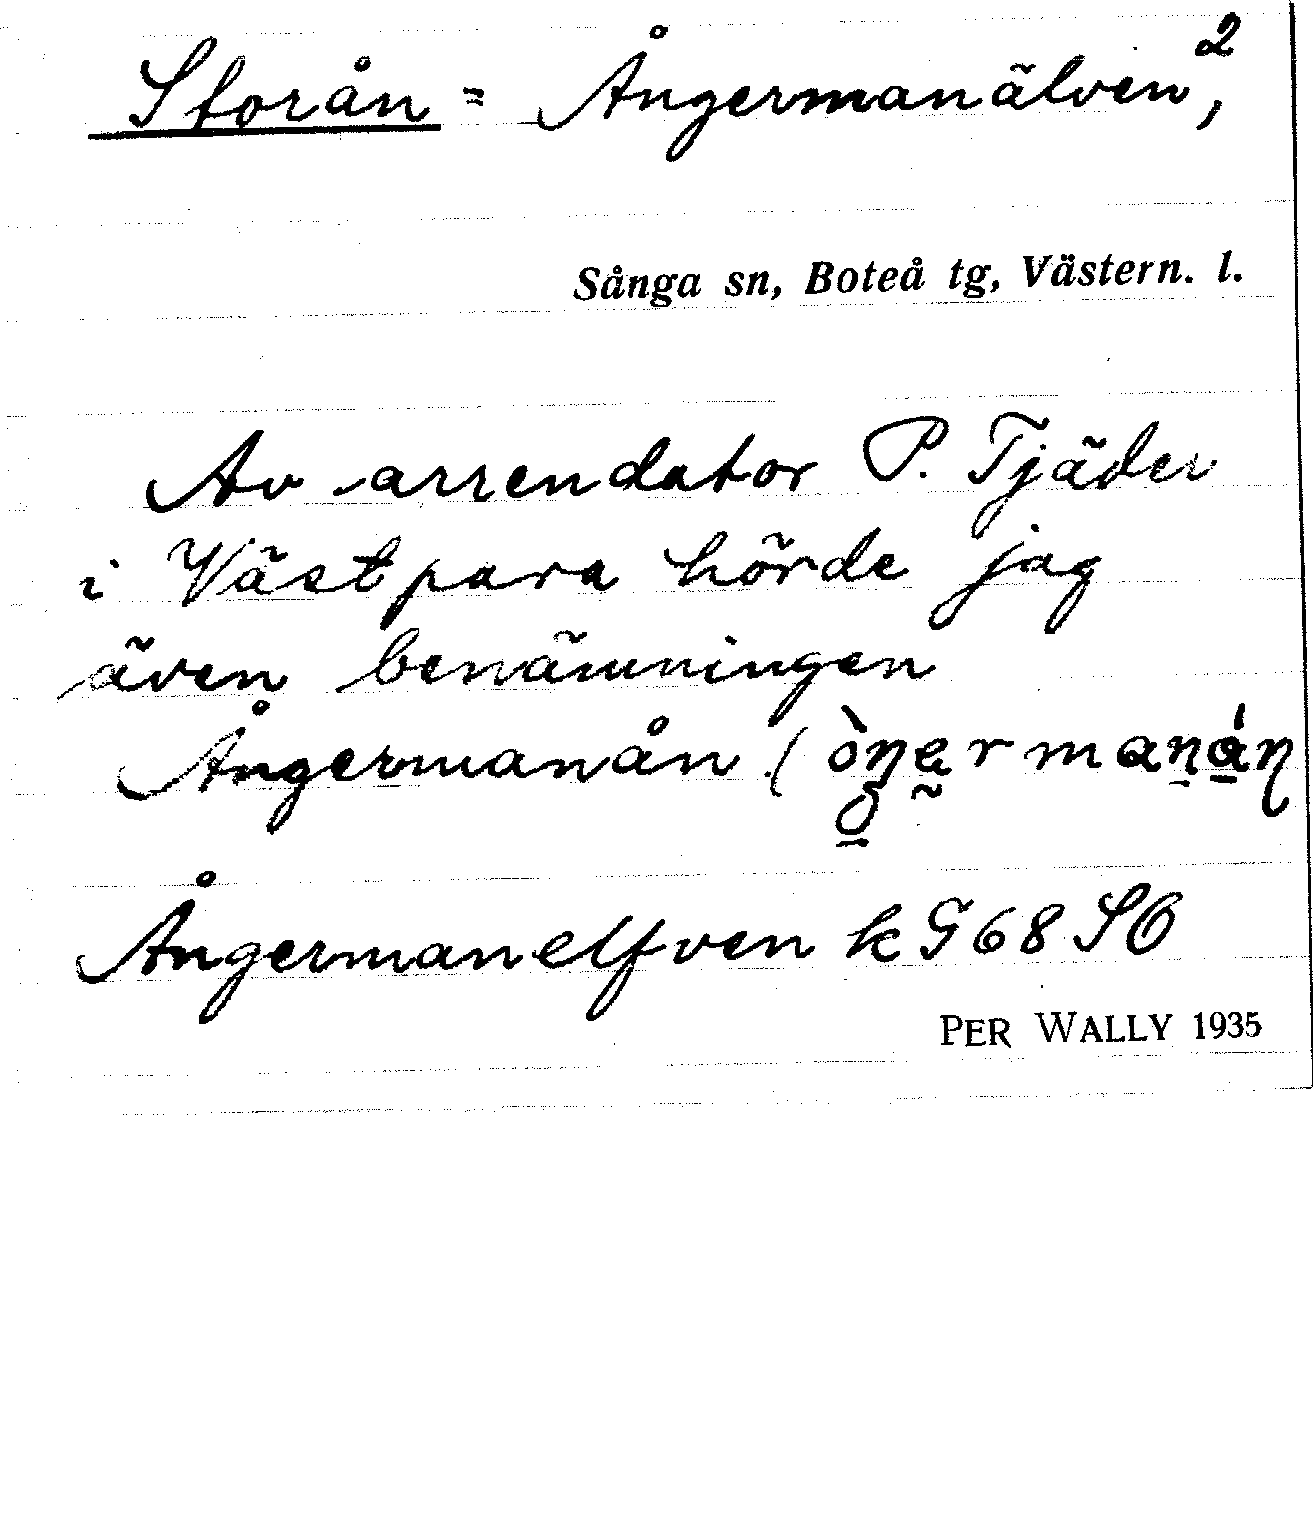 Storån = Ångermanälven, 2
Sånga sn, Boteå tg, Västern. l.
Av arrendator P. Tjäder
i Västpara hörde jag
även benämningen
Ångermanån (
Ångermanelfven k G68 SO
PER WALLY 1935